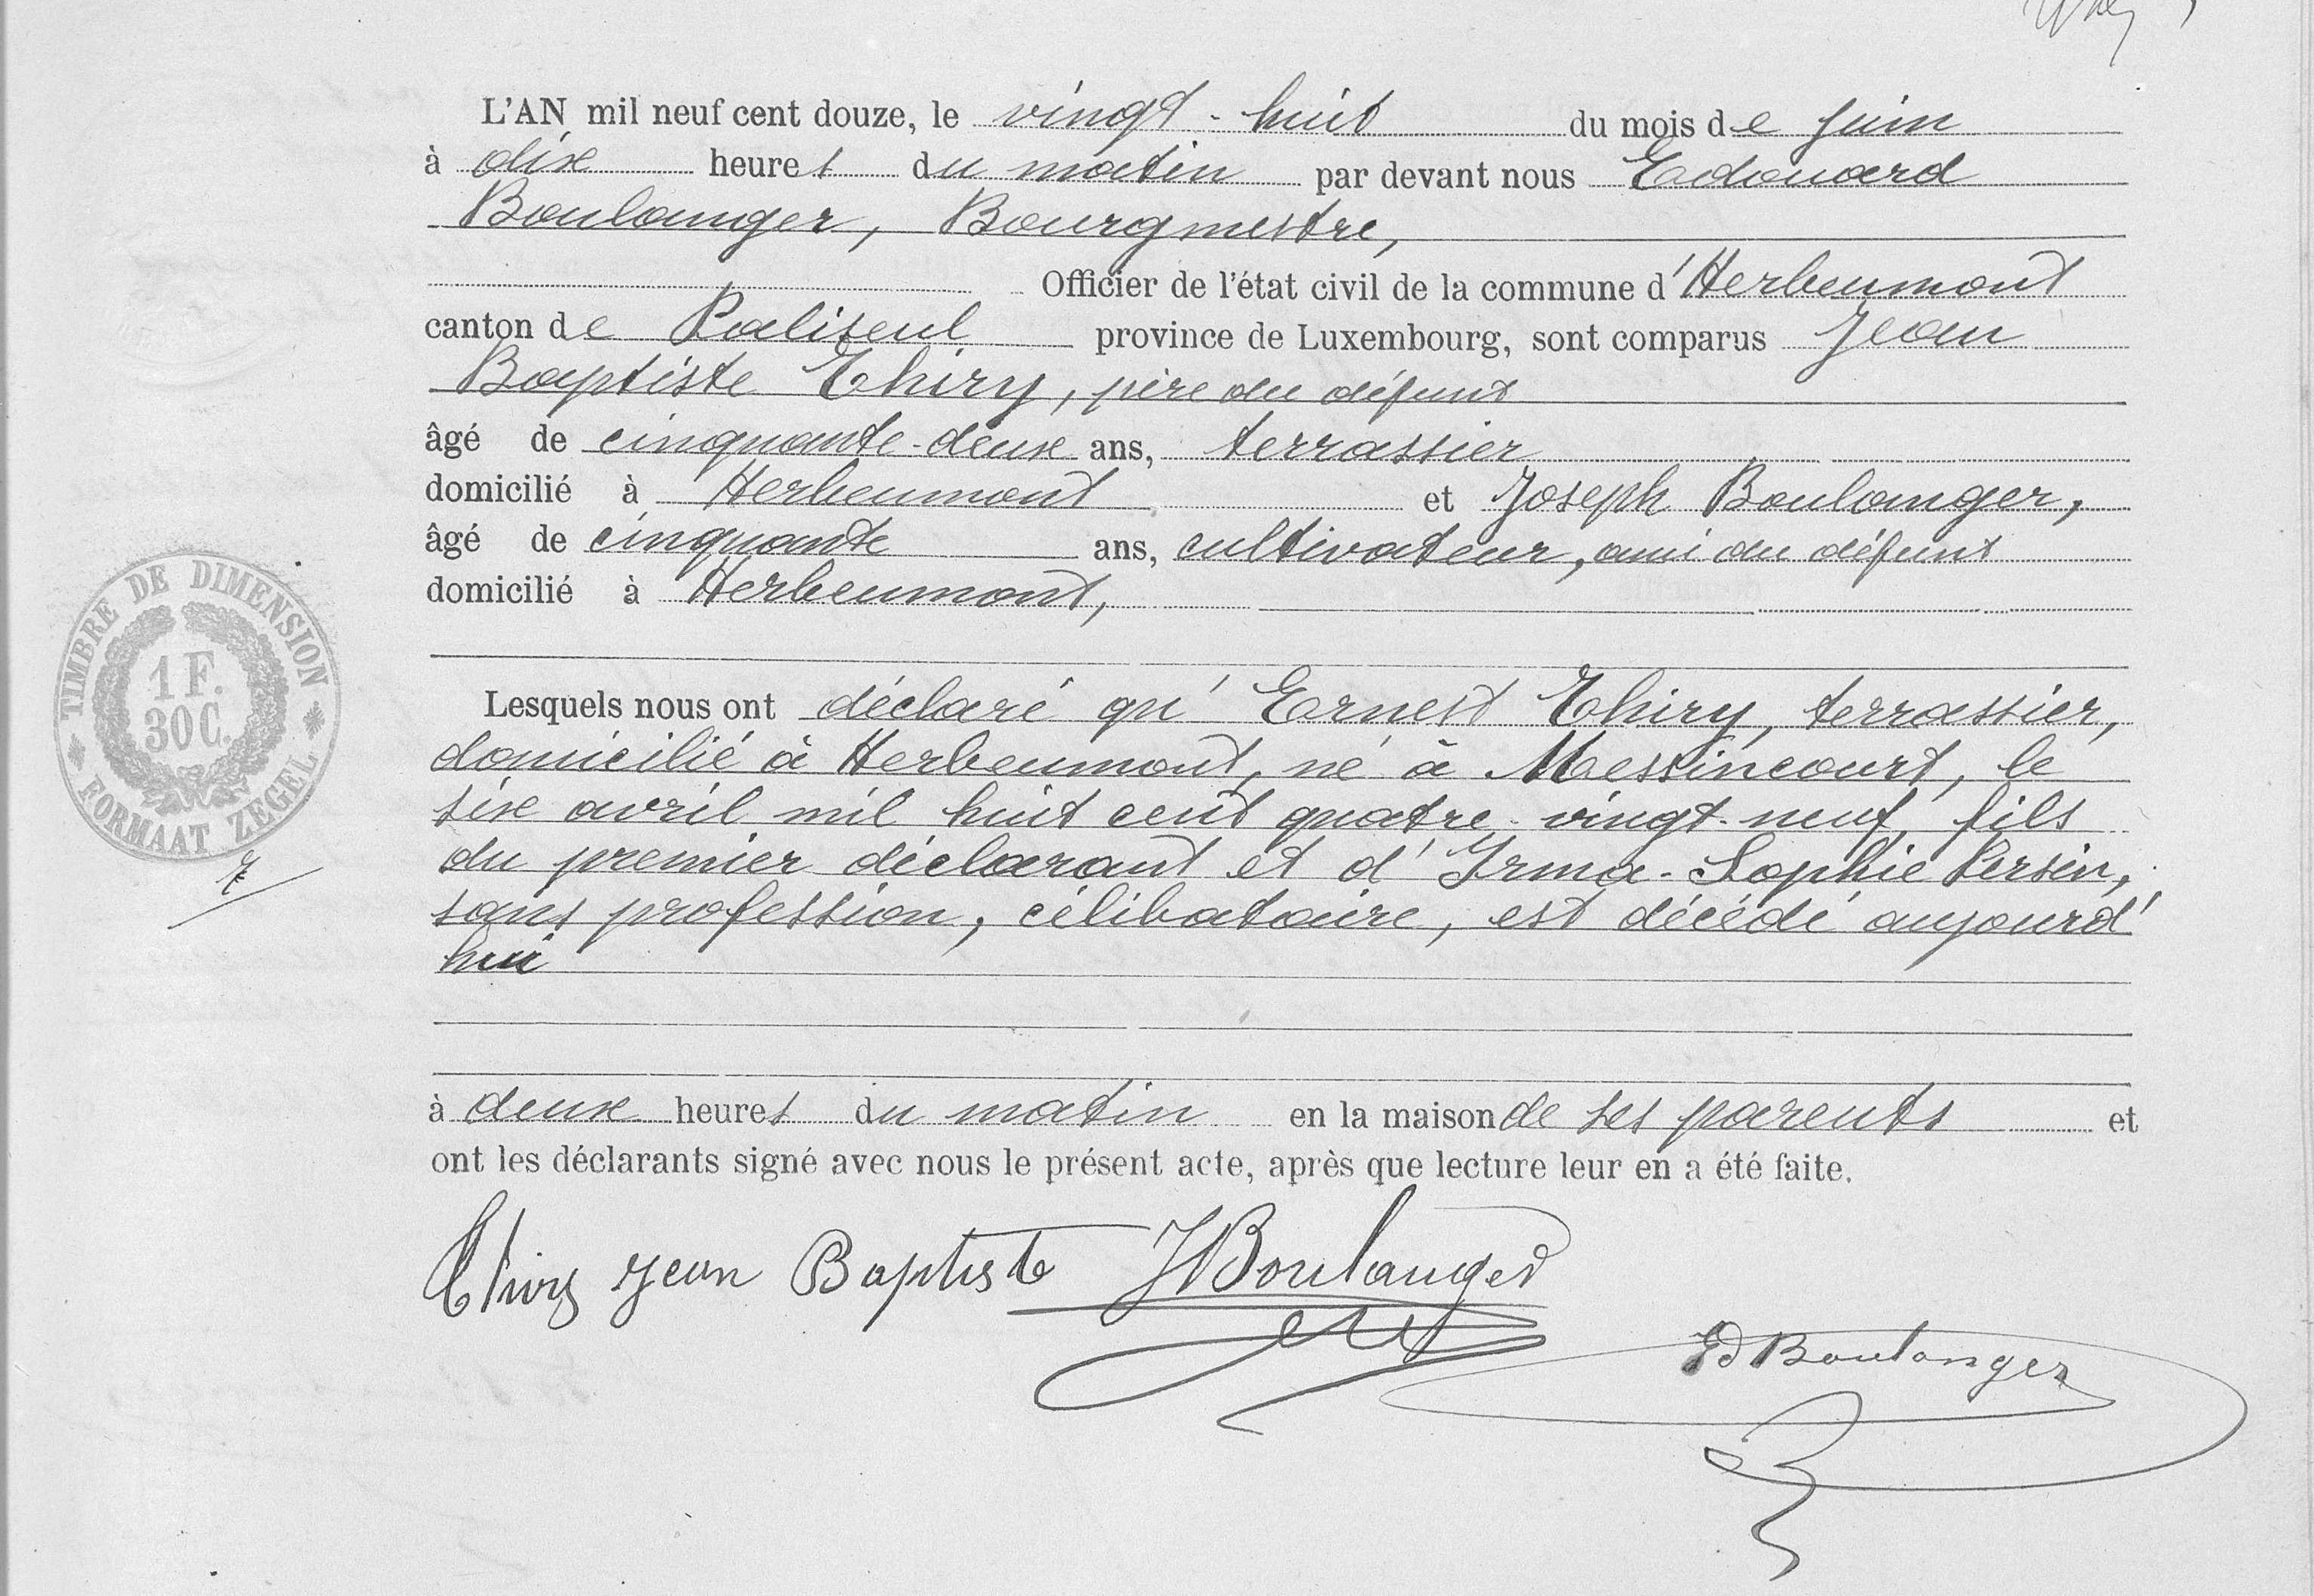 L'AN mil neuf cent douze, le vingt-huit du mois de Juin
à dix heures du matin par devant nous Edouard
Boulanger, Bourgmestre,
Officier de l'état civil de la commune d'Herbeumont
canton de Paliseul province de Luxembourg, sont comparus Jean
Baptiste Thiry, père du défunt
âgé de cinquante-deux ans, terrassier
domicilié à Herbeumont et Joseph Boulanger,
âgé de cinquante ans, cultivateur, ami du défunt
domicilié à Herbeumont,
TIMBRE DE DIMENSION
1 F.
30 C.
FORMAAT ZEGEL
Lesquels nous ont déclaré qu'Ernest Thiry, terrassier,
domicilié à Herbeumont, né à Messincourt, le
six avril mil huit cent quatre-vingt-neuf, fils
du premier déclarant et d'Irma-Sophie Persin,
sans profession, célibataire, est décédé aujourd'
hui
à deux heures du matin en la maison de ses parents et
ont les déclarants signé avec nous le présent acte, après que lecture leur en a été faite.
Thiry Jean Baptiste JBoulanger
Ed Boulanger